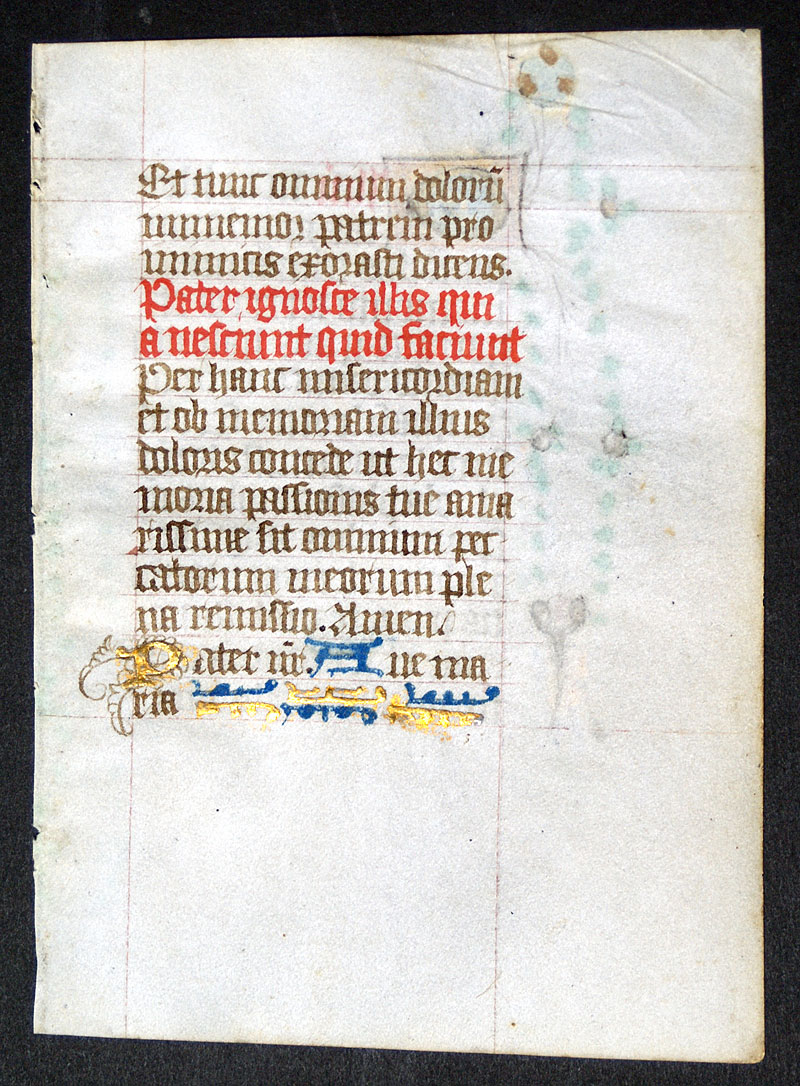 Et tunc omnium dolorū
immemor patrem pro
inimicis exorasti dicens.
Pater ignosce illis qui
a nesciunt quid faciunt
Per hanc misericordiam
et ob memoriam illius
doloris concede ut hec me
moria passionis tue ama
rissime sit omnium pec
catorum meorum ple
na remissio. Amen.
Pater nr̄. Aue ma
ria